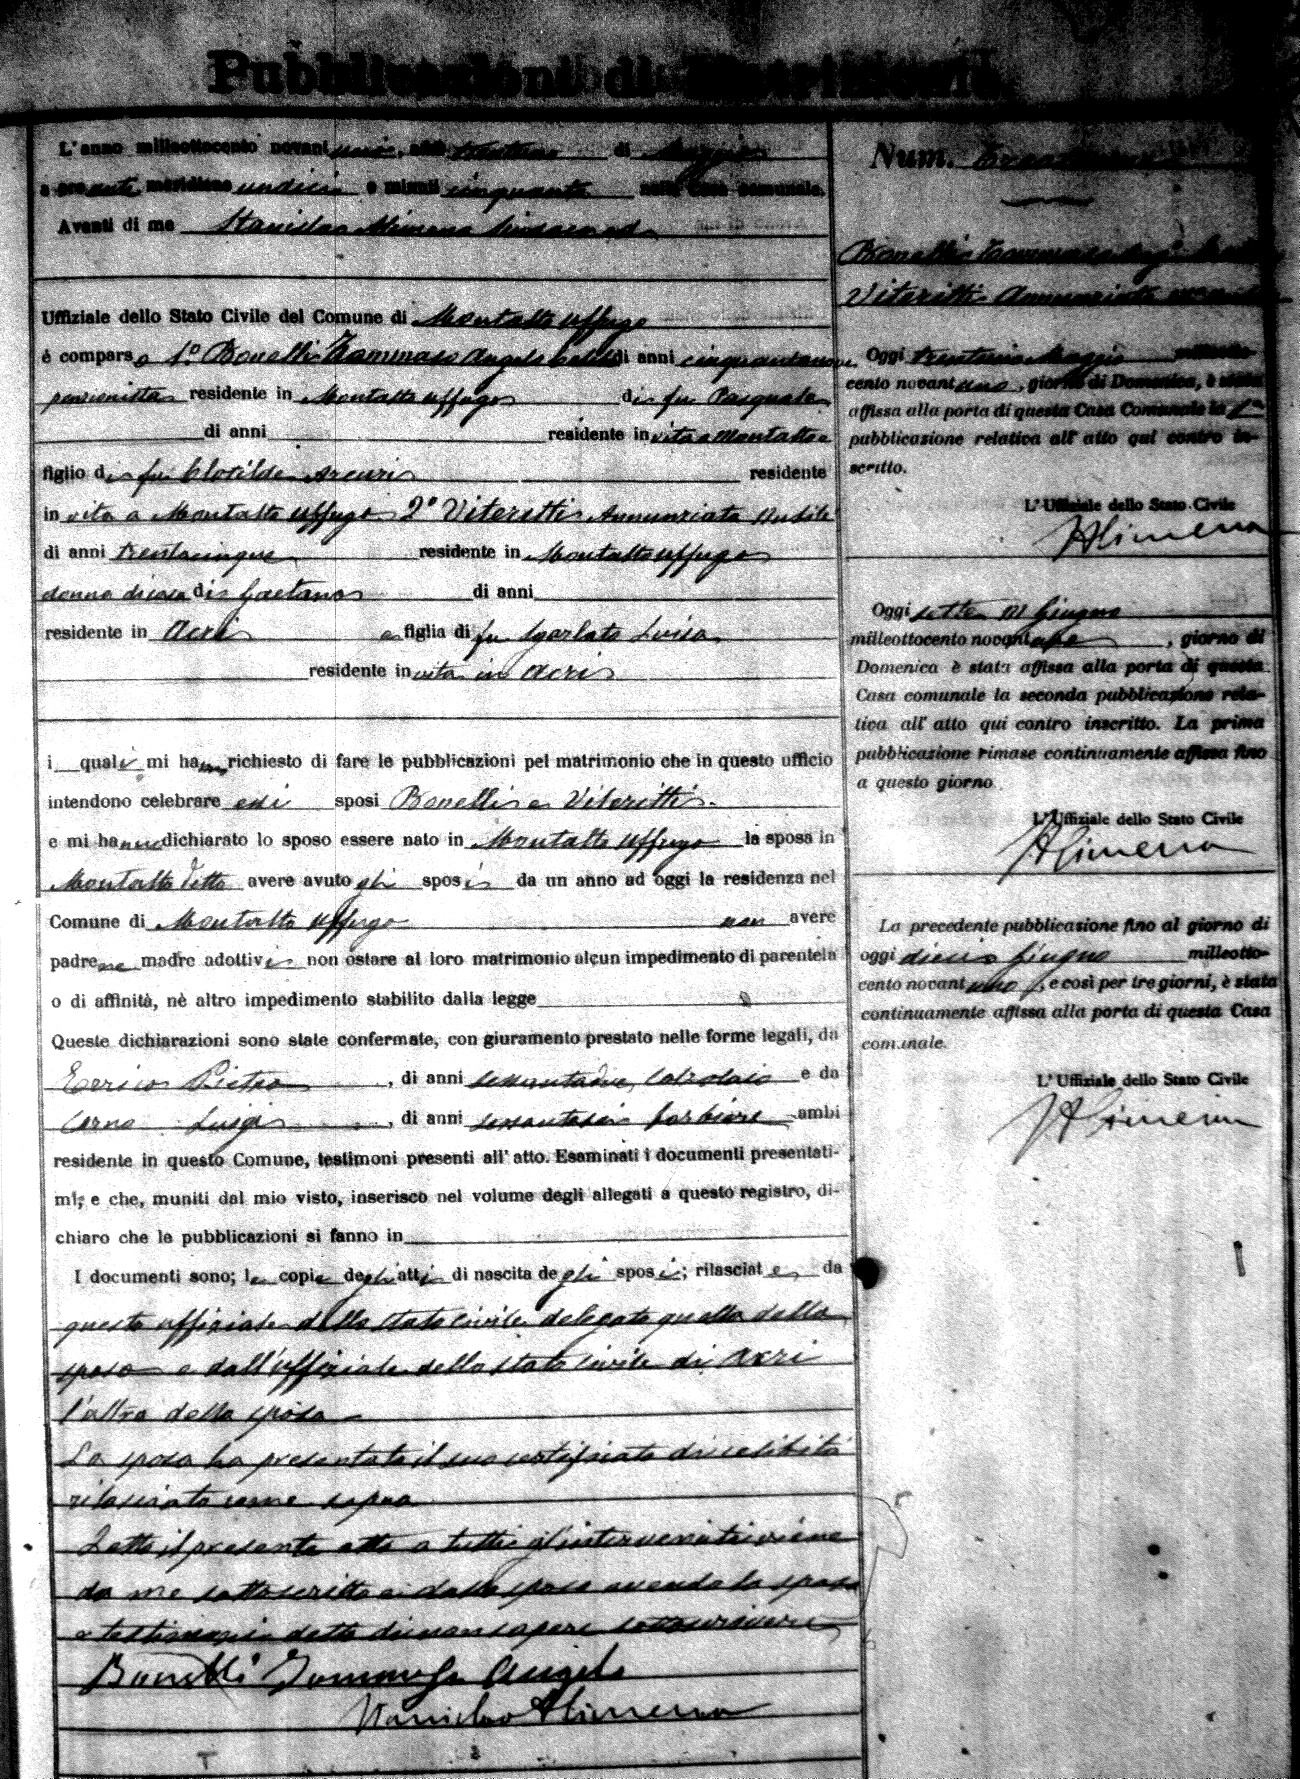 Pubblicazioni di Matrimonio
L'anno milleottocento novantuno, addì trentuno di Maggio
a ore ante meridiane undici e minuti cinquanta nella Casa comunale.
Avanti di me Stanislao Alimena
Uffiziale dello Stato Civile del Comune di Montalto Uffugo
è comparso 1º Bonelli Tommaso Angelo celibe di anni cinquantanove
pensionista residente in Montalto Uffugo di fu Pasquale
di anni residente in vita a Montalto e
figlio di fu Clotilde Arcuri residente
in vita a Montalto Uffugo 2º Viteritti Annunziata nubile
di anni trentacinque residente in Montalto Uffugo
donna di casa di Gaetano di anni
residente in Acri e figlia di fu Sgarlato Luisa
residente in vita in Acri
i quali mi hanno richiesto di fare le pubblicazioni pel matrimonio che in questo ufficio
intendono celebrare essi sposi Bonelli e Viteritti.
e mi hanno dichiarato lo sposo essere nato in Montalto Uffugo la sposa in
Montalto detto avere avuto gli sposi da un anno ad oggi la residenza nel
Comune di Montalto Uffugo non avere
padre ne madre adottivi non ostare al loro matrimonio alcun impedimento di parentela
o di affinità, nè altro impedimento stabilito dalla legge
Queste dichiarazioni sono state confermate, con giuramento prestato nelle forme legali, da
Pietro, di anni sessantadue, calzolaio e da
Luigi, di anni sessantasei barbiere ambi
residente in questo Comune, testimoni presenti all'atto. Esaminati i documenti presentati-
mi; e che, muniti dal mio visto, inserisco nel volume degli allegati a questo registro, di-
chiaro che le pubblicazioni si fanno in
I documenti sono; le copie degli atti di nascita degli sposi; rilasciate da
questo uffiziale dello stato civile delegato quella dello
sposo e dall'uffiziale dello stato civile di Acri
l'altra della sposa
La sposa ha presentato il suo certificato di celibità
rilasciato come sopra
Letto il presente atto a tutti gl'intervenuti viene
da me sottoscritto e dallo sposo avendo la sposa
e testimoni detto di non sapere sottoscrivere
Bonelli Tommaso Angelo
Stanislao Alimena
Num.
Bonelli Tommaso Angelo
Viteritti Annunziata
Oggi trentuno Maggio milleotto-
cento novantuno, giorno di Domenica, è stata
affissa alla porta di questa Casa Comunale la 1ª
pubblicazione relativa all'atto qui contro in-
scritto.
L'Uffiziale dello Stato Civile
S Alimena
Oggi sette di Giugno
milleottocento novantuno, giorno di
Domenica è stata affissa alla porta di questa
Casa comunale la seconda pubblicazione rela-
tiva all'atto qui contro inscritto. La prima
pubblicazione rimase continuamente affissa fino
a questo giorno
L'Uffiziale dello Stato Civile
S Alimena
La precedente pubblicazione fino al giorno di
oggi dieci Giugno milleotto-
cento novantuno, e così per tre giorni, è stata
continuamente affissa alla porta di questa Casa
comunale.
L'Uffiziale dello Stato Civile
S Alimena